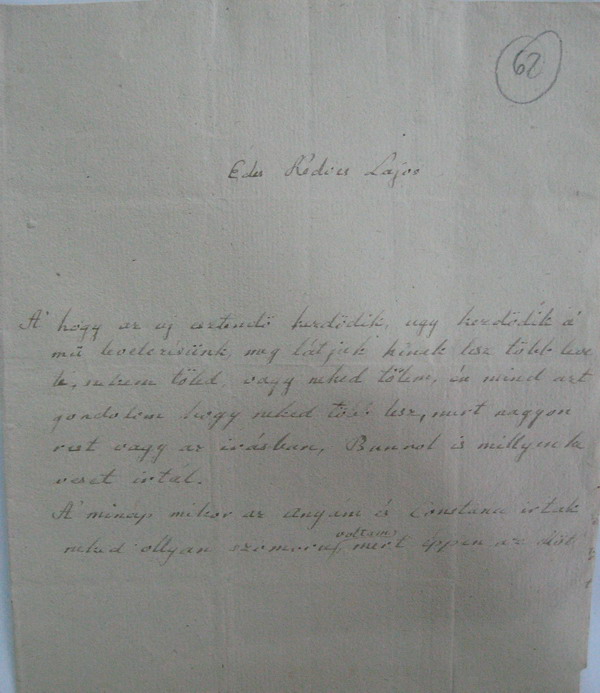 62
Edes Kedves Lajos
A' hogy az uj esztendő kezdődik, ugy kezdődik a'
mü levelezésünk, meg látjuk kinek lesz több leve
le, nekem töled, vagy neked tőlem, én mind azt
gondolom hogy neked több lesz, mert nagyon
rest vagy az irásban, is millyen ke
veset irtál.
A' minap mikor az anyám és irtak
neked ollyan szomoru voltam mert éppen az